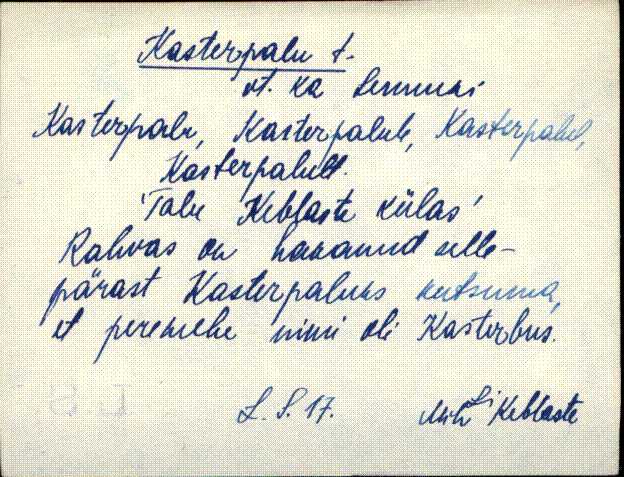 Kasterpalu t.
vt. ka Lemmusi
Kasterpalu, Kasterpalule, Kasterpalul,
Kasterpalult.
'Talu Keblaste külas'
Rahvas on hakanud selle-
pärast Kasterpaluks kutsuma,
et peremehe nimi oli Kasterbus.
L. S. 17. Mih Keblaste